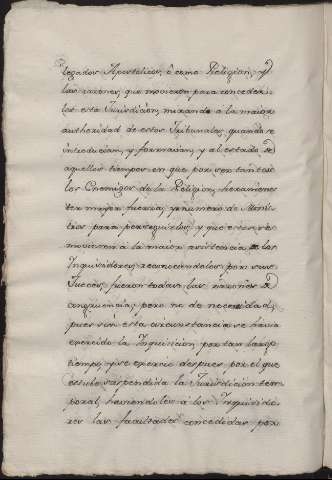 legados Apostolicos, ô como Religion, y
las razones, que movieron para conceder
les esta Jurisdicion, mirando a la maior
authoridad de estos Tribunales, quando se
introducian, y formavan, y al estado de
aquellos tiempos en que por ser tantos
los Enemigos de la Religion, era menes
ter maior fuerza, y numero de Minis
tros para perseguirlos, y que estos se
moviesen a la maior asistencia de los
Inquisidores, reconociendoles por sus
Jueces, fueron todas las razones de
congruencia, pero no de necesidad,
pues sin esta circunstancia se havia
exercido la Inquisicion por tan largo
tiempo, y se exerció despues por el que
estubo suspendida la Jurisdicion tem
poral, haviendoles a los Inquisido
res las facultades concedidas por